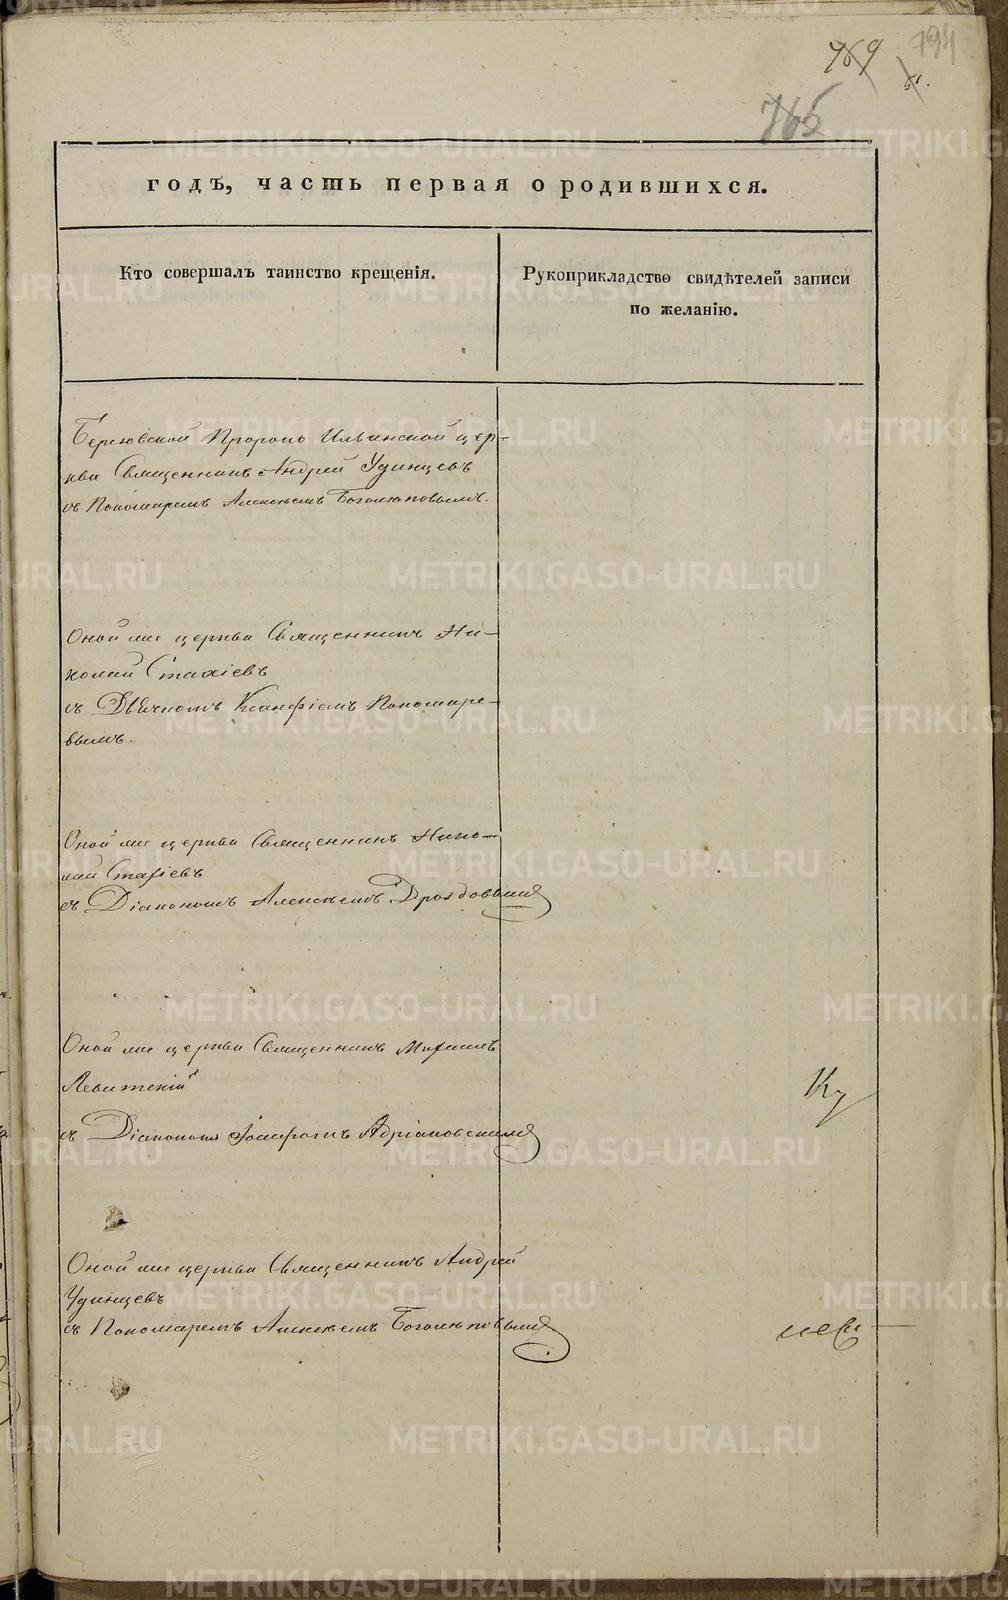 794
769
51.
765
годъ, часть первая о родившихся.
Кто совершалъ таинство крещенія.
Рукоприкладство свидѣтелей записи
по желанію.
Пророко Ильинской цер-
кви Священникъ Андрей Удинцевъ
съ Пономаремъ Алексѣемъ Боголюповымъ.
Оной же церкви Священникъ Ни-
колай Стахіевъ
съ Дьячкомъ Ксанфіемъ Пономаре-
вымъ.
Оной же церкви Священникъ Нико-
лай Стахіевъ
съ Діакономъ Алексѣемъ Дроздовымъ
Оной же церкви Священникъ Михаилъ
Левитскій
съ Діакономъ Іоасафомъ Адріановскимъ
Оной же церкви Священникъ Андрей
Удинцевъ
съ Пономаремъ Алексѣемъ Боголюповымъ
METRIKI.GASO-URAL.RU